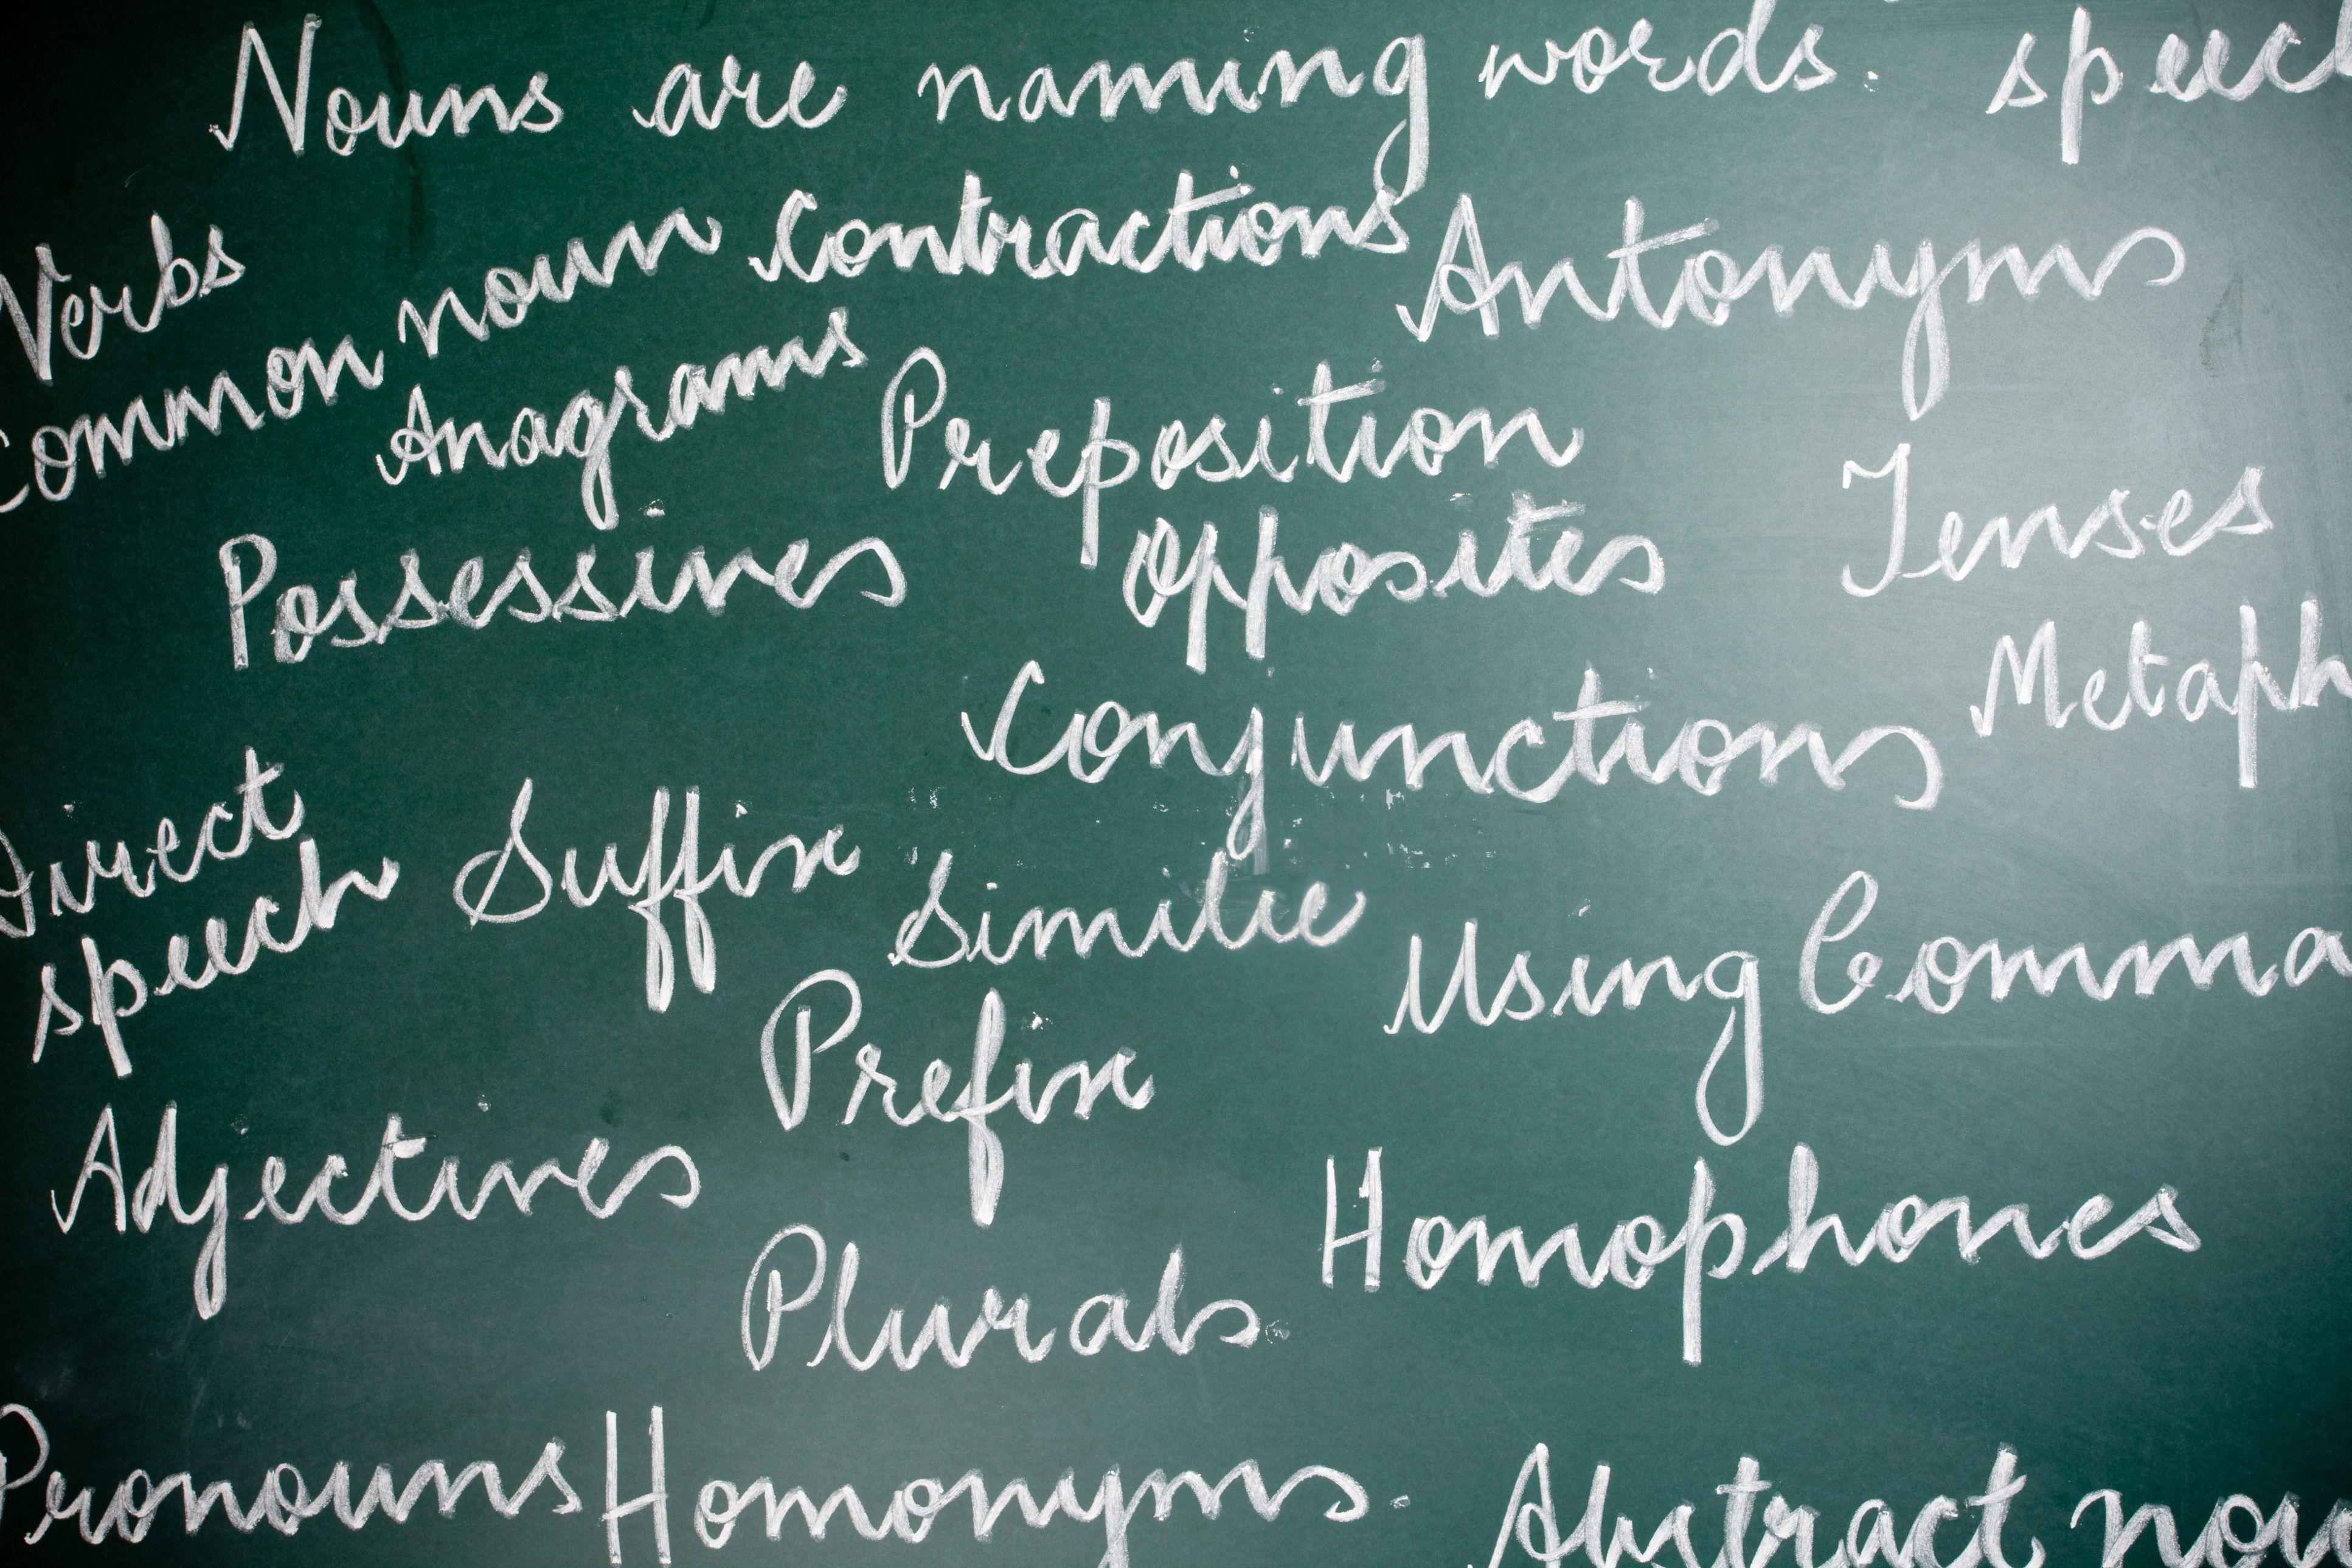 Nouns are naming words. speech
Verbs
Common noun Contractions Antonyms
Anagrams Preposition
Possessives opposites Tenses
Conjunctions Metaph
Direct
speech Suffix Similie
Using Comma
Prefix
Adjectives
Homophones
Plurals
Pronouns Homonyms. Abstract nou